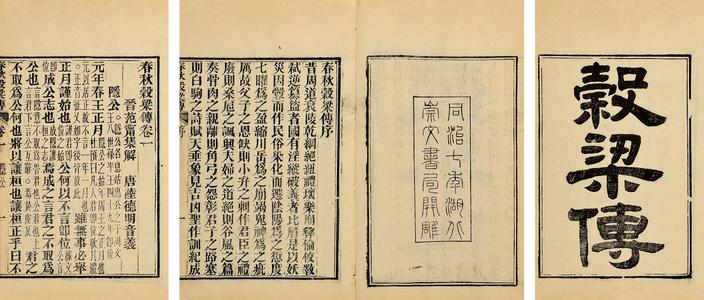 穀梁傳
同治七年湖北
崇文書局開雕
春秋穀梁傳序
昔周道衰陵乾綱絕紐禮壞樂崩彝倫攸斁
弑逆篡盜者國有淫縱破義者比肩是以妖
災因釁而作民俗染化而遷陰陽為之愆度
七曜為之盈縮川岳為之崩竭鬼神為之疵
厲故父子之恩缺則小弁之刺作君臣之禮
廢則桑扈之諷興夫婦之道絕則谷風之篇
奏骨肉之親離則角弓之怨彰君子之路塞
則白駒之詩賦天垂象見吉凶聖作訓紀成
春秋穀梁傳 序 一
春秋穀梁傳卷一
晉范甯集解 唐陸德明音義
隱公
元年春王正月
雖無事必舉
正月謹始也 公何以不言即位
成公志也 焉成之言君之不取為
公也 君之
不取為公何也將以讓桓也讓桓正乎曰不
春秋穀梁傳 卷一 一